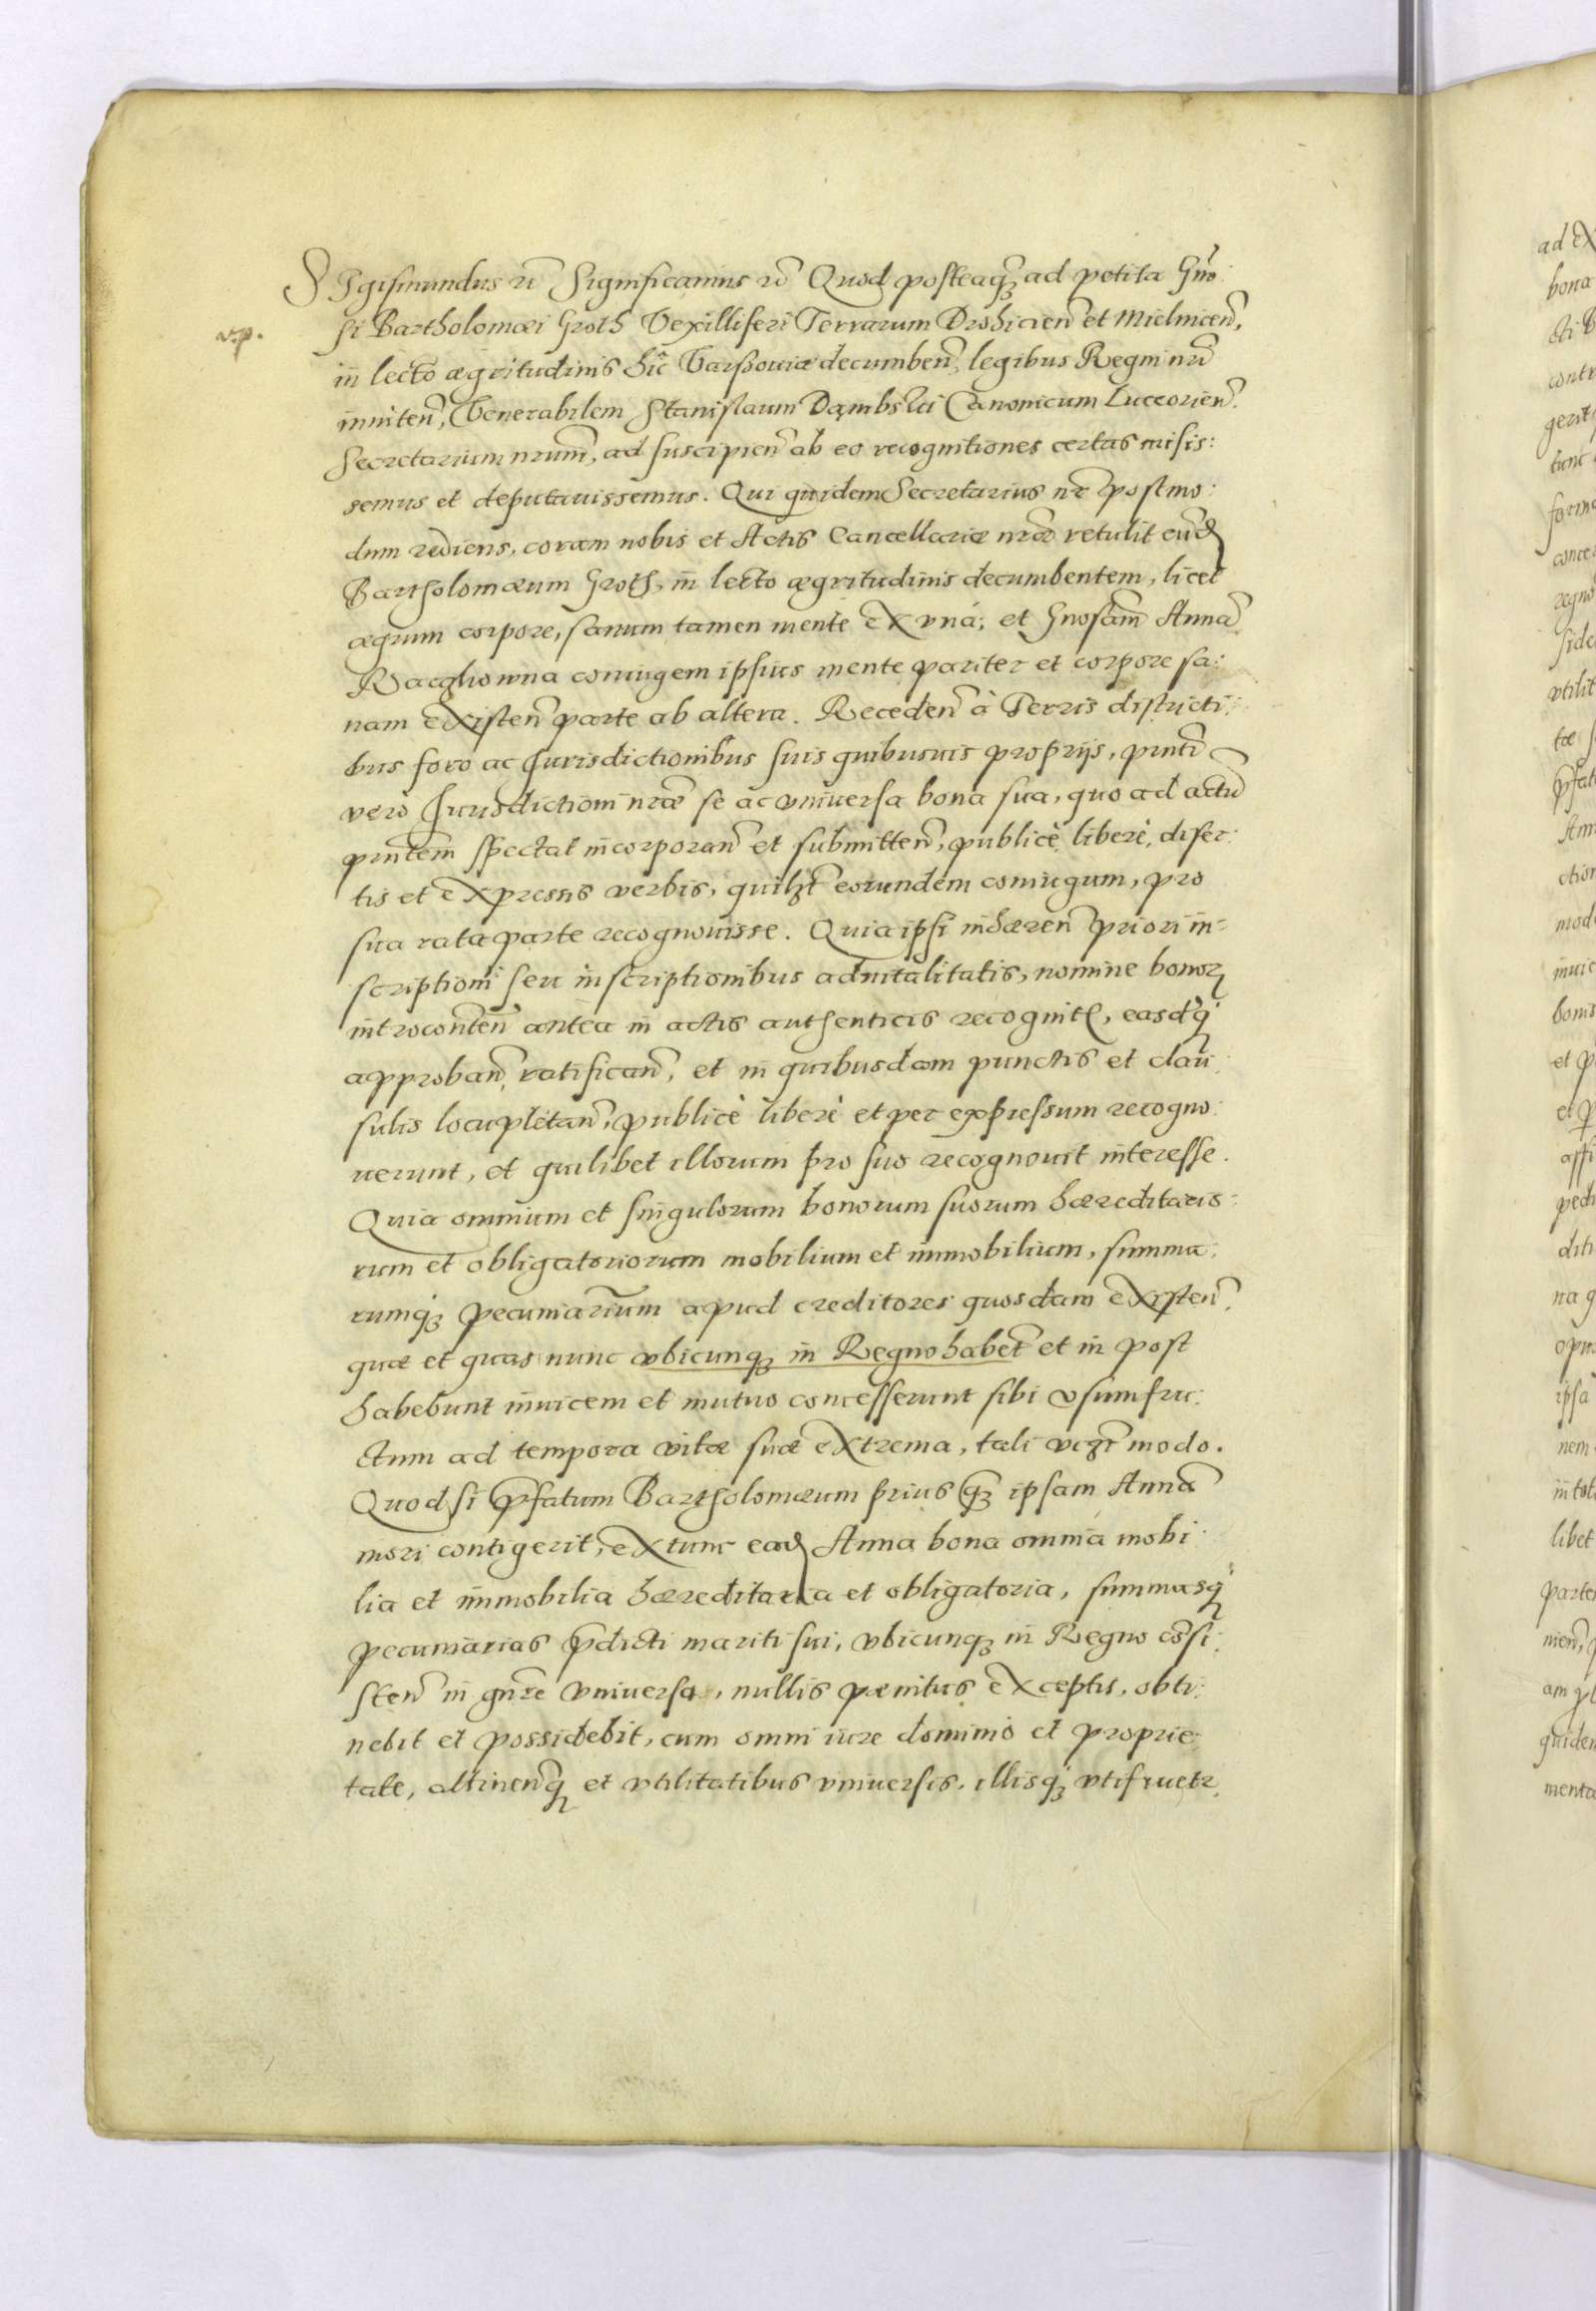 SIgismundus rē Significamus rē Quod posteaqȝ ad petita Gn̄o:
v.p.
si Bartholomæi Groth Vexilliferi Terrarum Drohicien̄ et Mielnicen̄,
in lecto ægritudinis hic Varssouiæ decumben̄, legibus Regni nr̄i
inniten̄, Venerabilem Stanislaum Dąmbski Canonicum Luceorien̄.
Secretarium nr̄um, ad suscipien̄ ab eo recognitiones certas misis:
semus et deputauissemus. Qui quidem Secretarius nr̄ postmo:
dum rediens, coram nobis et Actis Cancellariæ nræ retulit eund
Bartholomæum Groth, in lecto ægritudinis decumbentem, licet
ægrum corpore, sanum tamen mente ex vná, et Gnosam Annā
Bacghowna coniugem ipsius mente pariter et corpore sa:
nam existen̄ parte ab altera. Receden̄ à Terris districti:
bus foro ac Jurisdictionibus suis quibusuis proprijs, pn̄ti
vero Jurisdictioni nræ se ac vniuersa bona sua, quo ad actū
pn̄tem spectat incorporan̄ et submitten̄, publicè liberè, diser:
tis et expressis verbis, quilȝt eorundem coniugum, pro
sua rata parte recognouisse. Quia ipsi inhæren̄ priori in-
scriptioni seu inscriptionibus aduitalitatis, nomine bonoꝝ
introconten̄ antea in actis authenticis recognit, easdqȝ
approban̄, ratifican̄, et in quibusdam punctis et clau:
sulis locupletan̄, publicè liberè et per expressum recogno:
uerunt, et quilibet illorum pro suo recognouit interesse.
Quia omnium et singulorum bonorum suorum hæreditario:
rum et obligatoriorum mobilium et immobilium, summa:
rumqȝ pecuniarium apud creditores quosdam existen̄.
quæ et quas nunc vbicunqȝ in Regno haben̄t et in post
habebunt inuicem et mutuo concesserunt sibi vsumfru:
ctum ad tempora vitæ suæ extrema, tali vȝt modo.
Quod si p̄fatum Bartholomæum prius qȝ ipsam Annā
mori contigerit, ex tunc ead Anna bona omnia mobi:
lia et immobilia hæreditaria et obligatoria, summasqȝ
pecuniarias p̄dicti mariti sui, vbicunqȝ in Regno cōsi:
sten̄ in gn̄re vniuersa, nullis pænitus exceptis, obti:
nebit et possidebit, cum omni iure dominio et proprie:
tate, attinen̄qȝ et vtilitatibus vniuersis, illisqȝ vtifruetr.